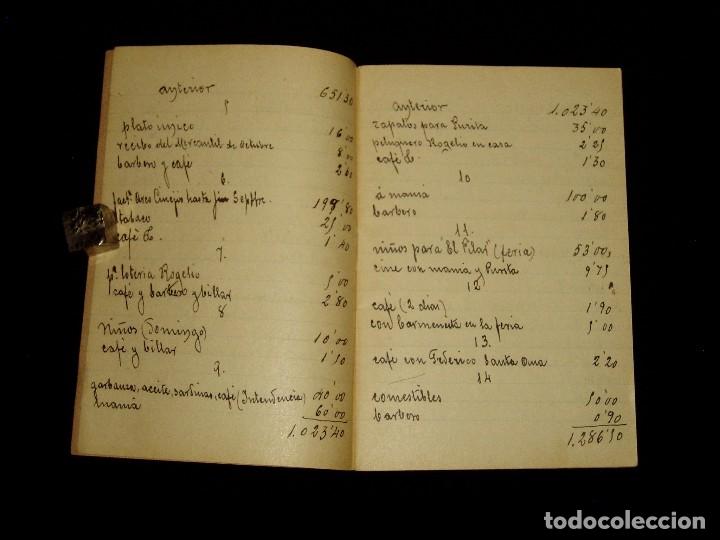 anterior 651'30
5
plato único 16'00
recibo del Mercantil de Octubre 8'00
barbero y café 2'60
6.
fact. Arco Cinejio hasta fin Sepbre. 199'80
tabaco 25'00
café L. 1'40
7.
pª lotería Rogelio 5'00
café y barbero y billar 2'80
8
Niños (Domingo) 10'00
café y billar 1'50
9.
garbanzo, aceite, sardinas, café (Intendencia) 40'00
mamá 60'00
1.023'40
anterior 1.023'40
zapatos para Purita 35'00
peluquero Rogelio en casa 2'25
café L. 1'30
10
á mamá 100'00
barbero 1'80
11.
niños para "El Pilar" (feria) 53'00,
cine con mamá y Purita 9'75
12
café (2 dias) 1'90
con Carmencita en la feria 5'00
13.
café con Federico Santa Ana 2'20
14
comestibles 50'00
barbero 0'90
1.286'50
todocoleccion